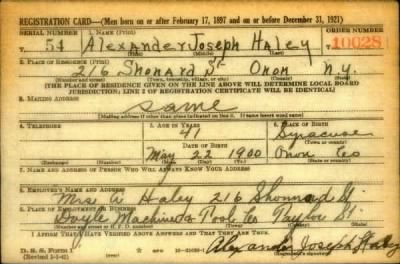 REGISTRATION CARD—(Men born on or after February 17, 1897 and on or before December 31, 1921)
SERIAL NUMBER 1. NAME (Print) ORDER NUMBER
54 Alexander Joseph Haley 10028
(First) (Middle) (Last)
2. PLACE OF RESIDENCE (Print)
216 Shonard St Onon N.Y.
(Number and street) (Town, township, village, or city) (County) (State)
[THE PLACE OF RESIDENCE GIVEN ON THE LINE ABOVE WILL DETERMINE LOCAL BOARD
JURISDICTION; LINE 2 OF REGISTRATION CERTIFICATE WILL BE IDENTICAL]
3. MAILING ADDRESS
same
[Mailing address if other than place indicated on line 2. If same insert word same]
4. TELEPHONE 5. AGE IN YEARS 6. PLACE OF BIRTH
41 Syracuse
DATE OF BIRTH
May 22 1900 Onon Co
(Mo.) (Day) (Yr.)
7. NAME AND ADDRESS OF PERSON WHO WILL ALWAYS KNOW YOUR ADDRESS
Mrs A Haley 216 Shonnard St.
8. EMPLOYER'S NAME AND ADDRESS
Doyle Machine & Tool Co Taylor St
9. PLACE OF EMPLOYMENT OR BUSINESS
I AFFIRM THAT I HAVE VERIFIED ABOVE ANSWERS AND THAT THEY ARE TRUE.
D. S. S. Form 1
(Revised 1-1-42) (over) Alexander Joseph Haley